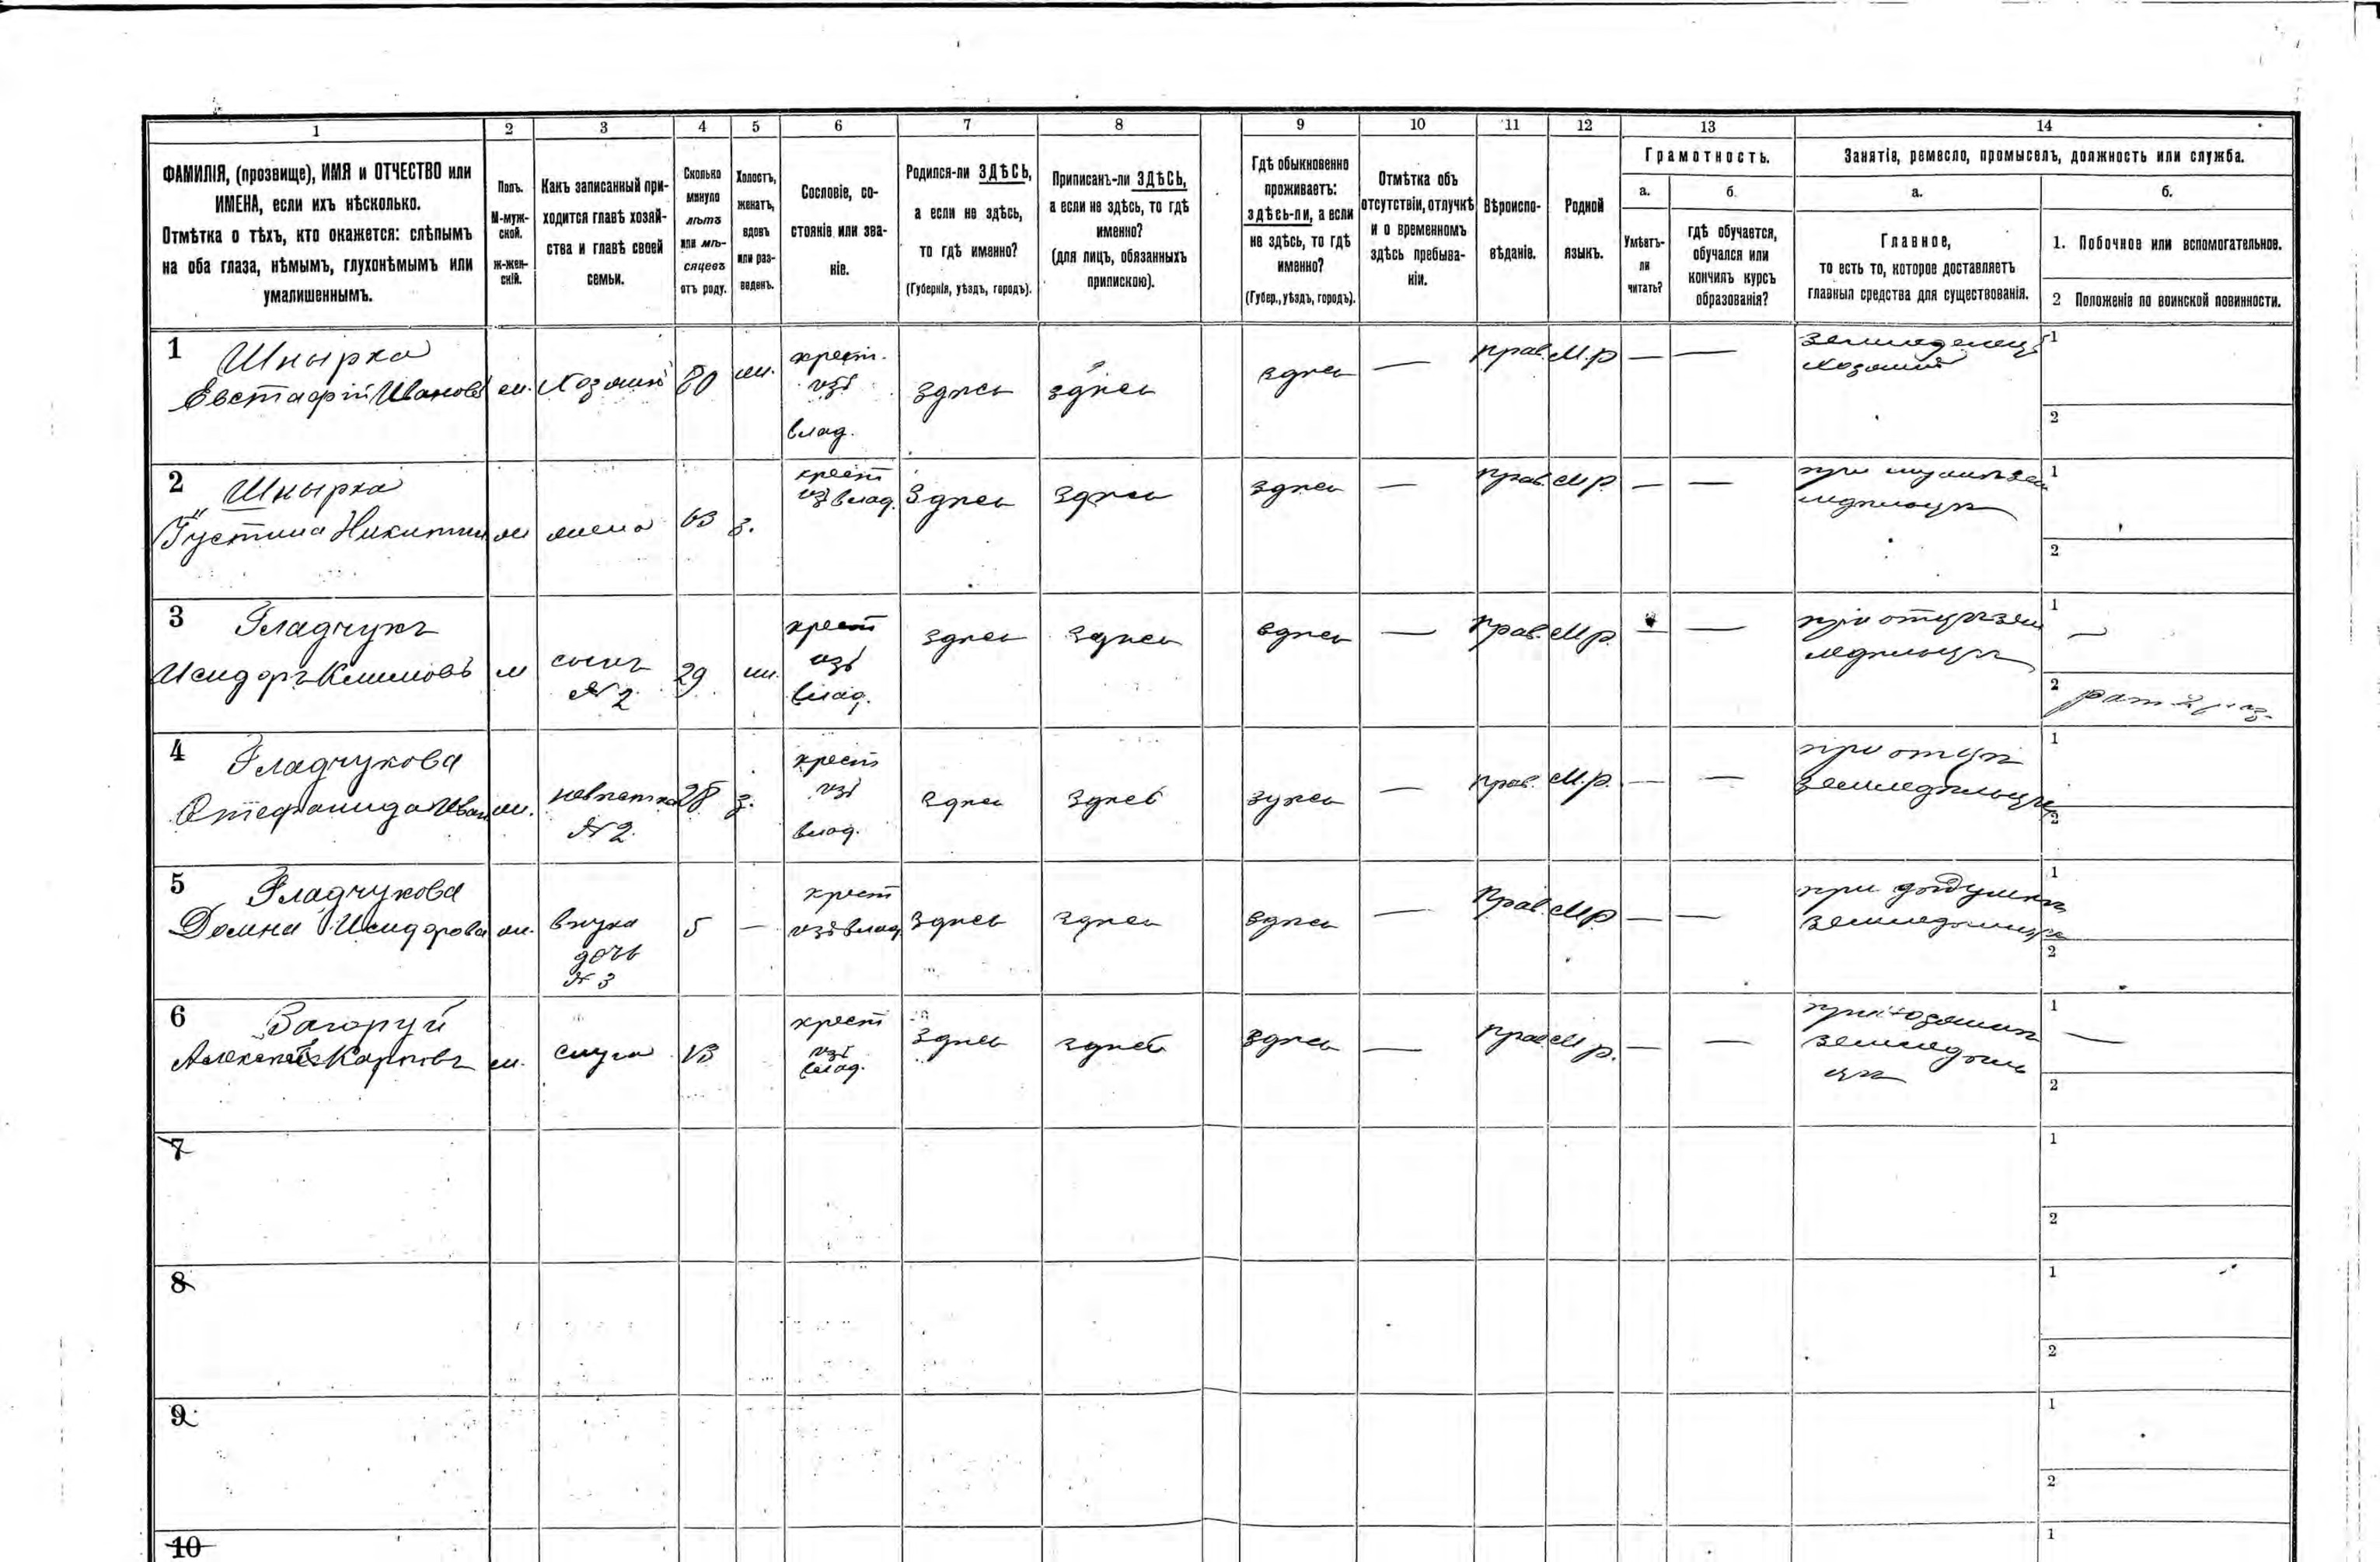 1 2 3 4 5 6 7 8 9 10 11 12 13 14
ФАМИЛІЯ, (прозвище), ИМЯ и ОТЧЕСТВО или
ИМЕНА, если ихъ нѣсколько.
Отмѣтка о тѣхъ, кто окажется: слѣпымъ
на оба глаза, нѣмымъ, глухонѣмымъ или
умалишеннымъ.
Полъ.
М-муж-
ской.
ж-жен-
скій.
Какъ записанный при-
ходится главѣ хозяй-
ства и главѣ своей
семьи.
Сколько
минуло
лѣтъ
или мѣ-
сяцевъ
отъ роду.
Холостъ,
женатъ,
вдовъ
или раз-
веденъ.
Сословіе, со-
стояніе или зва-
ніе.
Родился-ли ЗДѢСЬ,
а если не здѣсь,
то гдѣ именно?
(Губернія, уѣздъ, городъ).
Приписанъ-ли ЗДѢСЬ,
а если не здѣсь, то гдѣ
именно?
(для лицъ, обязанныхъ
припискою).
Гдѣ обыкновенно
проживаетъ:
здѣсь-ли, а если
не здѣсь, то гдѣ
именно?
(Губер., уѣздъ, городъ).
Отмѣтка объ
отсутствіи, отлучкѣ
и о временномъ
здѣсь пребыва-
ніи.
Вѣроиспо-
вѣданіе.
Родной
языкъ.
Грамотность.
а.
Умѣетъ-
ли
читать?
б.
гдѣ обучается,
обучался или
кончилъ курсъ
образованія?
Занятіе, ремесло, промыселъ, должность или служба.
а.
Главное,
то есть то, которое доставляетъ
главныя средства для существованія.
б.
1. Побочное или вспомогательное.
2 Положеніе по воинской повинности.
1 Шкырка
Евстафій Ивановъ м. Хозяинъ 80 ж. крест. изъ влад. здѣсь здѣсь здѣсь — прав. М.р — — земледелецъ хозяинъ 1
2
2 Шкырка
Густина Никитин ж жена 63 з. крест изъ влад. здѣсь здѣсь здѣсь — прав. М р. — — при мужѣ зем ледѣльцѣ 1
2
3 Гладчукъ
Исидоръ Климовъ м сынъ № 2 29 ж. крест изъ влад. здѣсь здѣсь здѣсь — прав. М р. — — при отцѣ зем ледѣльцѣ 1 —
2 рат 2 раз.
4 Гладчукова
Стефанида Иван ж. невѣстка № 2. 28 з. крест изъ влад. здѣсь здѣсь здѣсь — прав. М.р. — — при отцѣ земледѣльцѣ 1
2
5 Гладчукова
Домна Исидорова ж. внука дочь № 3 5 — крест изъ влад здѣсь здѣсь здѣсь — прав. М р. — — при дѣдушкѣ земледѣльцѣ 1
2
6 Загоруй
Алексей Карповъ м. слуга 13 крест изъ влад. здѣсь здѣсь здѣсь — прав. М р. — — при хозяинѣ земледѣль цѣ 1 —
2
7 1
2
8 1
2
9 1
2
10 1